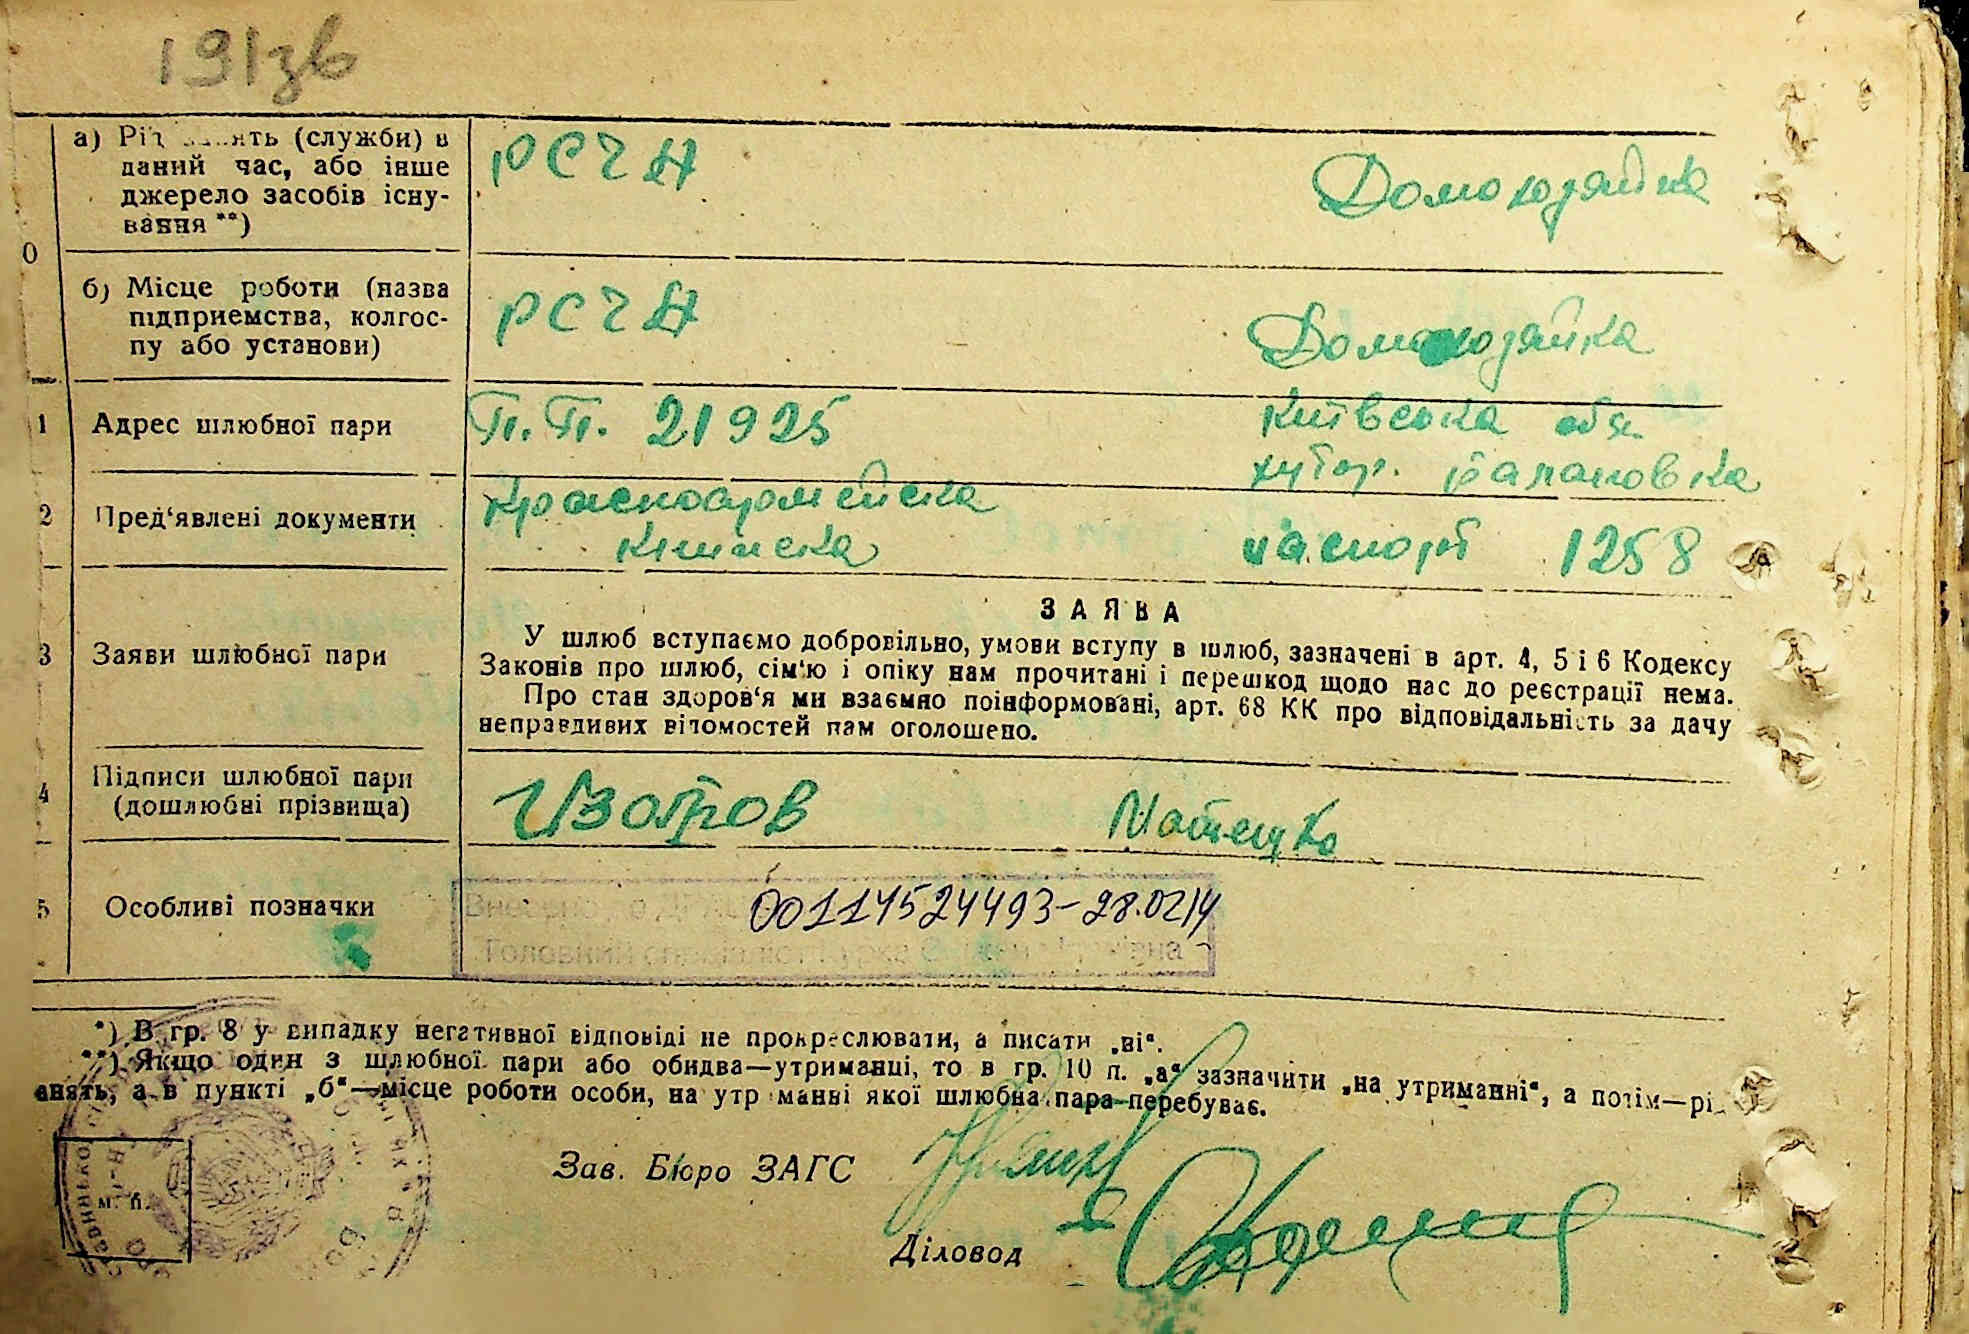 191зв
а) Рід занять (служби) в
даний час, або інше
джерело засобів існу-
вання **)
РСЧА
Домохозяйка
0
б) Місце роботи (назва
підприємства, колгос-
пу або установи)
РСЧА
Домохозяйка
1 Адрес шлюбної пари
П.П. 21925
Київська обл.
хутор.
2 Пред‘явлені документи
Красноармейска
книжска
паспорт 1258
3 Заяви шлюбної пари
ЗАЯВА
У шлюб вступаємо добровільно, умови вступу в шлюб, зазначені в арт. 4, 5 і 6 Кодексу
Законів про шлюб, сім‘ю і опіку нам прочитані і перешкод щодо нас до реєстрації нема.
Про стан здоров‘я ми взаємно поінформовані, арт. 68 КК про відповідальність за дачу
неправдивих відомостей нам оголошено.
4 Підписи шлюбної пари
(дошлюбні прізвища)
Изотов
Матешко
5 Особливі позначки
00114524493-28.02/14
Головний спеціаліст
*) В гр. 8 у випадку негативної відповіді не прокреслювати, а писати „ні“.
**) Якщо один з шлюбної пари або обидва—утриманці, то в гр. 10 п. „а“ зазначити „на утриманні“, а потім—рід
анять, а в пункті „б“—місце роботи особи, на утриманні якої шлюбна пара перебуває.
м. п.
Зав. Бюро ЗАГС
Діловод